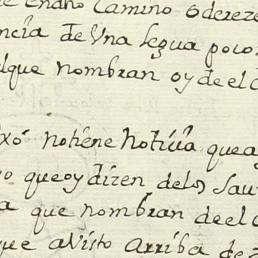 en dho Camino o dereze
ncia de Una legua poco
que nombran oy de el C
xó no tiene Noticia, que a
o que oy dizen de los Sau
a que nombran de el C
que a Visto arriba de